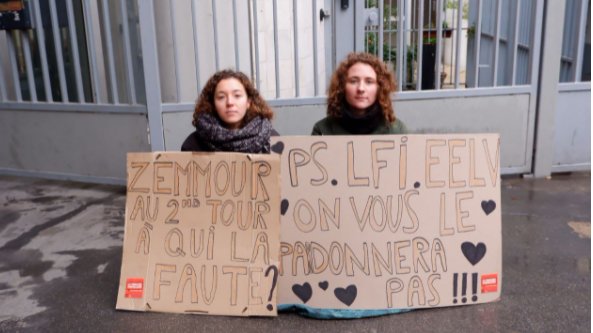 ZEMMOUR
AU 2ND TOUR
À QUI LA
FAUTE?
PS. LFi. EELV
ON VOUS LE
PADONNERA
PAS!!!